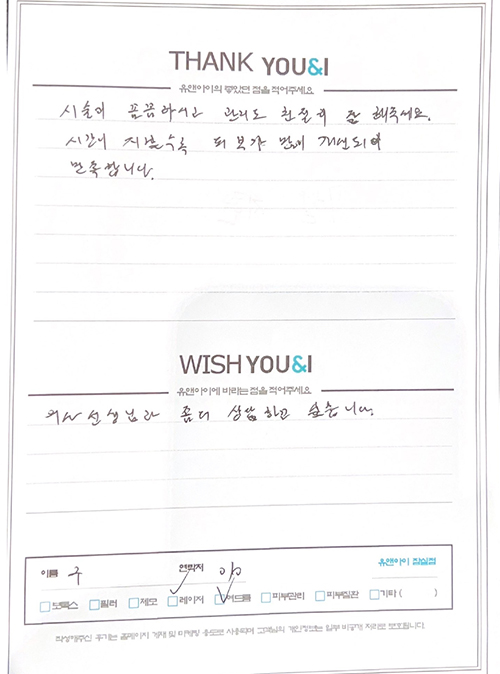 THANK YOU&I
유앤아이의 좋았던 점을 적어주세요
시술이 꼼꼼하시고 관리도 친절히 잘 해주세요.
시간이 지날수록 피부가 많이 개선되어
만족합니다.
WISH YOU&I
유앤아이에 바라는 점을 적어주세요
의사선생님과 좀더 상담하고 싶습니다.
이름 구 연락처 010 유앤아이 잠실점
보톡스 필러 제모 레이저 여드름 피부관리 피부질환 기타 ( )
작성해주신 후기는 홈페이지 게재 및 마케팅 용도로 사용되며 고객님의 개인정보는 일부 비공개 처리로 보호됩니다.